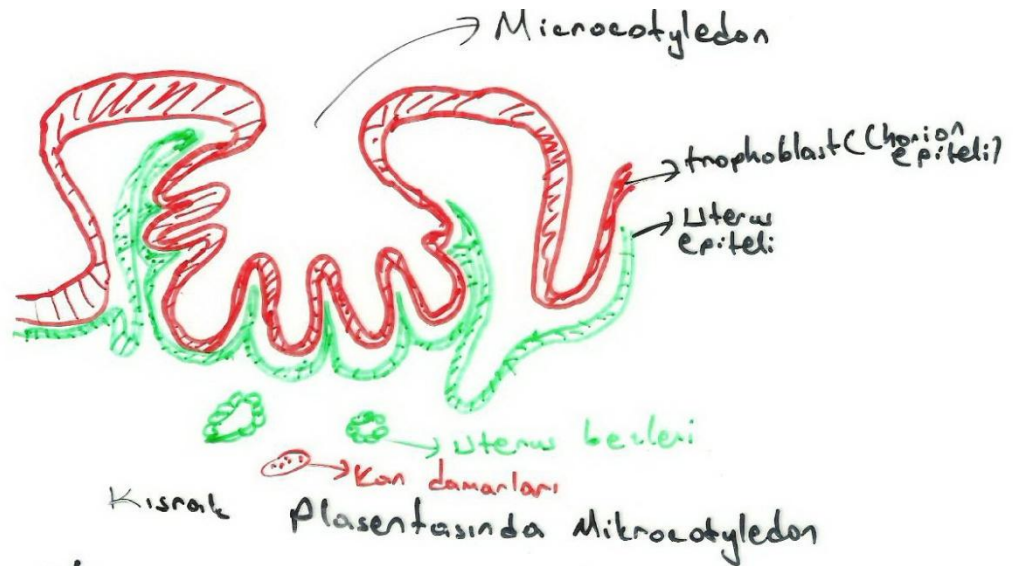 Microcotyledon
trophoblast (Chorion
epiteli)
Uterus
epiteli
Uterus bezleri
Kan damarları
Kısrak Plasentasında Mikrocotyledon